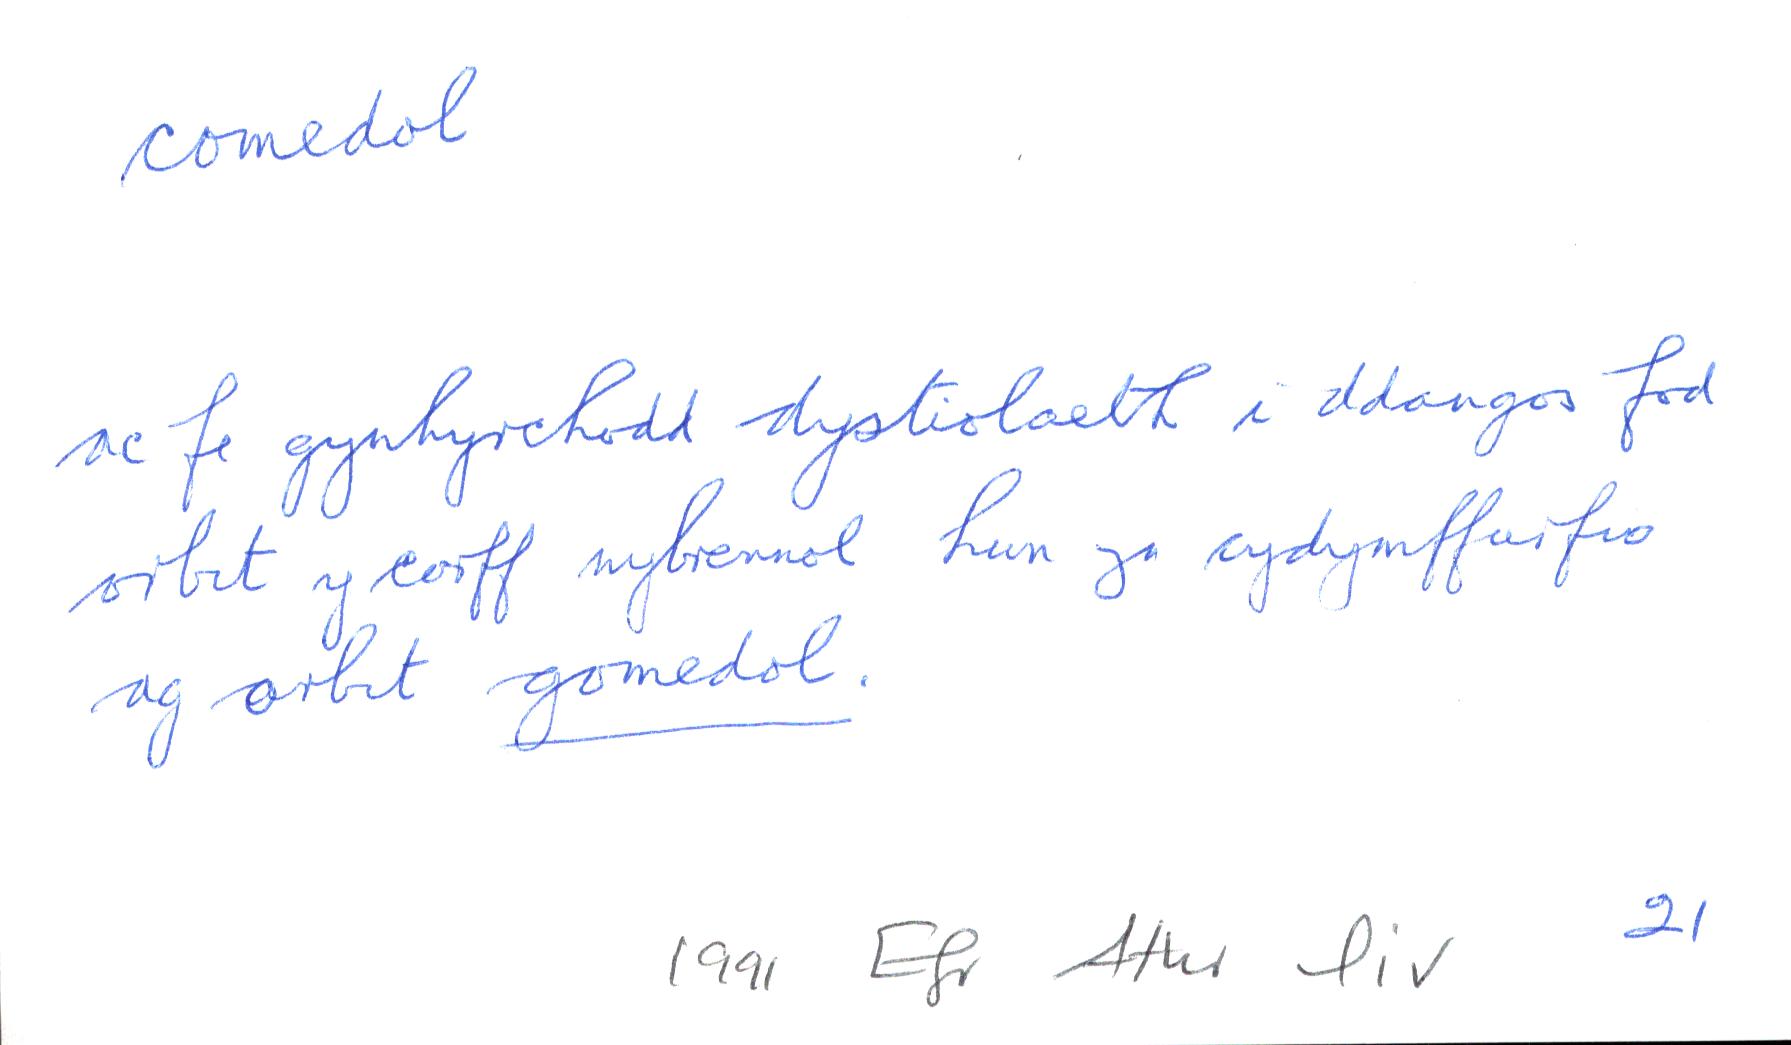 comedol
ac fe gynhyrchodd dystiolaeth i ddangos fod
orbit y corff wybrennol hwn yn cydymffurfio
ag orbit gomedol.
1991 Efr Athr liv 21